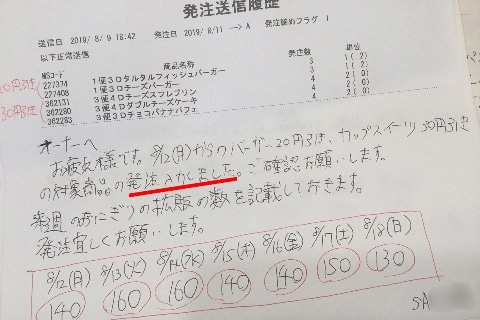 発注送信履歴
送信日 2019/ 8/ 9 18:42 発注日 2019/ 8/11 --> A 発注締めフラグ 1
以下正常送信
NSコード 商品名称 発注数 単位
227374 1便3Dタルタルフィッシュバーガー 3 1( 2)
227408 1便3Dチーズバーガー 3 1( 2)
362131 3便4Dチーズスフレプリン 4 2( 0)
362280 3便4Dダブルチーズケーキ 4 2( 0)
362283 3便3Dチョコバナナパフェ 4 2( 0)
20円引き
30円引き
オーナーへ
お疲れ様です。8/12(月)からのバーガー20円引き、カップスイーツ30円引き
の対象商品の発注入力しました。ご確認お願いします。
来週のおにぎりの拡販の数を記載しておきます。
発注宜しくお願いします。
8/12(月) 8/13(火) 8/14(水) 8/15(木) 8/16(金) 8/17(土) 8/18(日)
140 160 160 140 140 150 130
SA